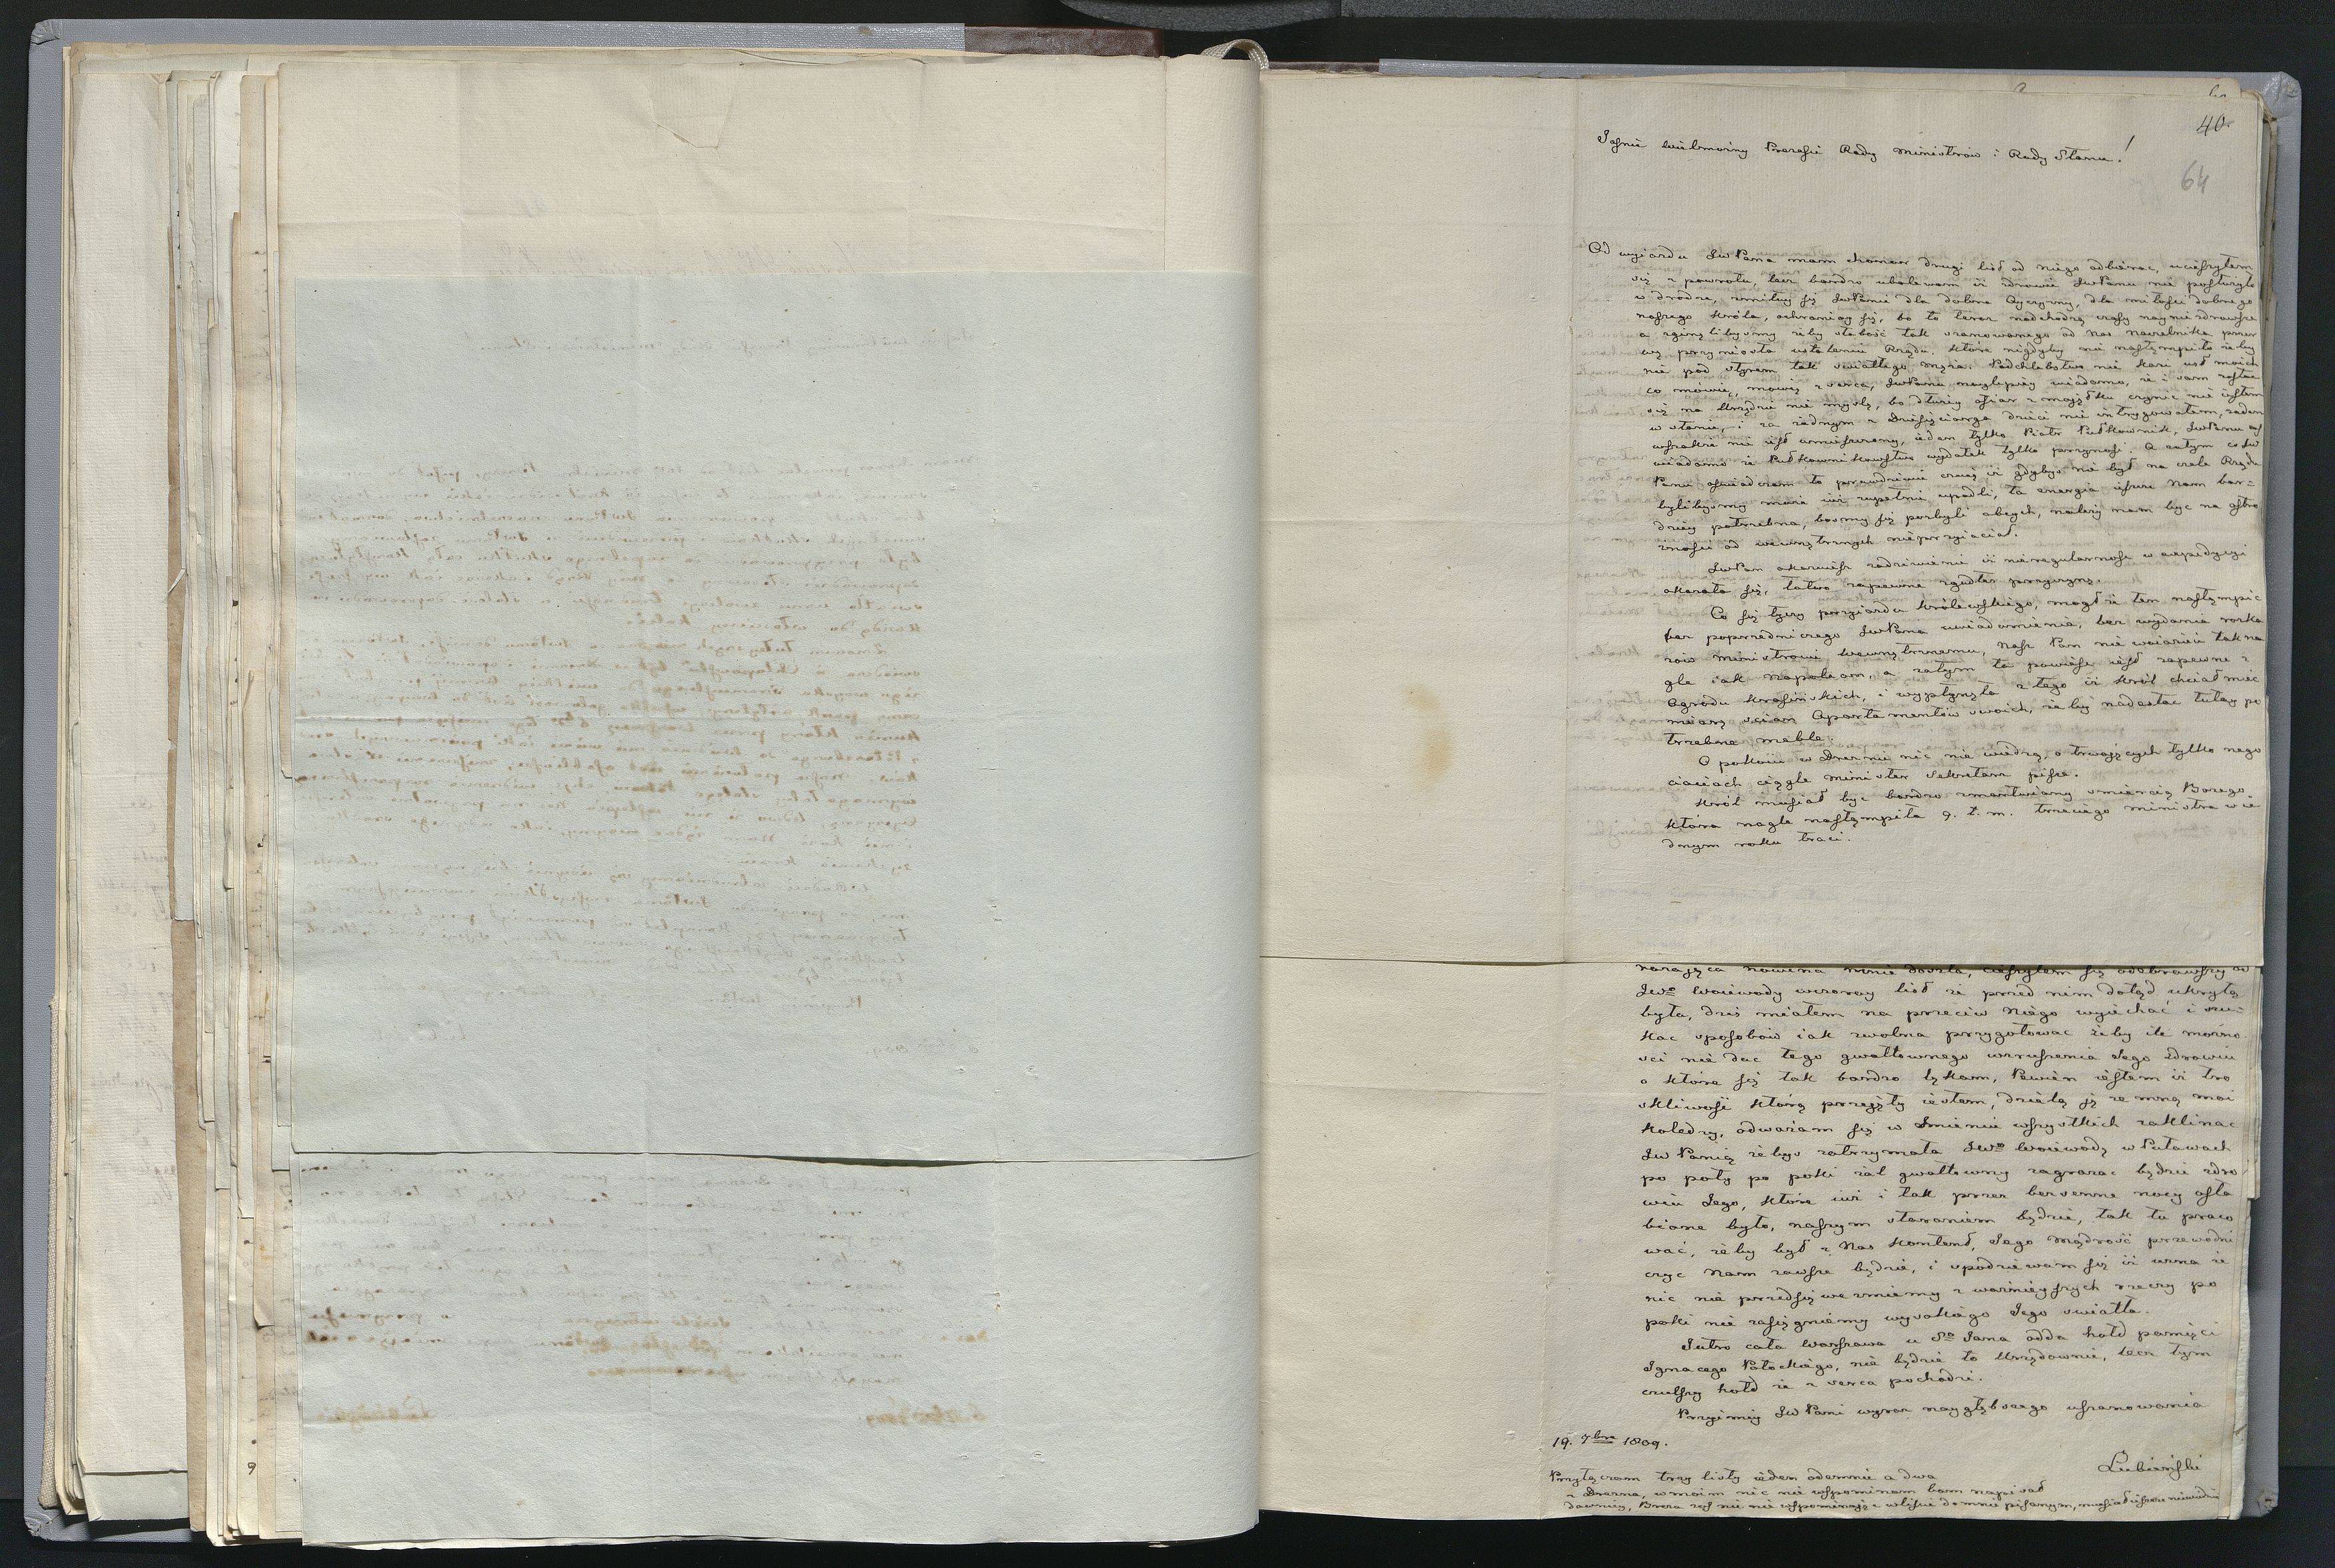 40.
64
Jaśnie Wielmożny Prezesie Rady Ministrów i Rady Stanu!
Od wyiazdu JwPana mam honor drugi list od niego odbierac, ucieszyłem
się z powrotu, lecz bardzo ubolewam iż zdrowie JwPanu nie posłużyło
w drodze, zmiłuy się JwPanie dla dobra Oyczyzny, dla miłosci dobrego
naszego Króla, ochraniay się, bo to teraz nadchodzą czasy nayniezdrowsze
a zginęlibysmy żeby słabość tak szanowanego od nas naczelnika przer
wę przyniosła ustaleniu Rządu, które nigdyby nie nastąmpiło żeby
nie pod sterem tak swiatłego męża. Podchlebstwo nie kazi ust moich
co mówię, mowię z serca, JwPanu naylepiey wiadomo, że i sam zostac
się na Urzędzie nie myslę, bo dłużey ofiar z maiątku czynic nie iestem
w stanie, i za żadnym z Dziesięciorga dzieci nie intrygowałem, żaden
wszakże nie iest umieszczony, ieden tylko Piotr Pułkownik, JwPanu
wiadomo że Pułkownikowstwo wydatek tylko przynosi. A zatym co Jw
Panu oswiadczam to prawdziwie czuię iż gdybys nie był na czele Rządu
bylibysmy może iuż zupełnie upadli, ta energia ieszcze nam bar=
dziey potrzebna, bosmy się pozbyli obcych, należy nam byc na ostro
żnosci od wewnętrznych nieprzyiacioł.
JwPan okazuiesz zadziwienie iż nieregularnosc w expedycyi
okazała się, łatwo zapewne zgadłes przyczynę.
Co się tyczy przyiazdu Królewskiego, mogł że ten nastąmpić
bez poprzedniczego JwPana uwiadomienia, bez wydania rozka
zów Ministrowi Wewnętrznemu, nasz Pan nie woiażuie tak na
gle iak Napoleon, a zatym ta powiesc iest zapewne z
Ogrodu Krasinskich, i wypłynęła z tego iż Król chciał miec
miarę scian Apartamentów swoich, żeby nadesłac tutay po
trzebne meble.
O pokoiu w Dreznie nic nie wiedzą, o trwaiących tylko nego
ciaciach ciągle Minister Sekretarz pisze.
Król musiał byc bardzo zmartwiony smiercią Bozego
która nagle nastąmpiła 9. t. m. trzeciego Ministra w ie
dnym roku traci.
rażaiąca nowina mnie doszła, cieszyłem się odebrawszy od
JWo Woiewody wczoray list że przed nim dotąd ukrytą
była, dzis miałem na przeciw Niego wyiechać i szu=
kac sposobów iak zwolna przygotowac żeby ile możno
sci nie dac tego gwałtownego wzruszenia Jego zdrowiu
o które się tak bardzo lękam, Pewien iestem iż tro
skliwosć którą przeięty iestem, dzielą ią ze mną moi
koledzy, odważam się w Imieniu wszystkich zaklinac
JwPanią żebys zatrzymała JWo Woiewodę w Puławach
po poty po poki żal gwałtowny zagrażac będzie zdro
wiu Jego, które iuż i tak przez bezsenne nocy osła
bione było, naszym staraniem będzie, tak tu praco
wać, żeby był z Nas kontent, Jego mądrość przewodni
czyc Nam zawsze będzie, i spodziewam się iż uzna że
nic nie przedsięweźmiemy z ważnieyszych rzeczy po
poki nie zasięgniemy wysokiego Jego swiatła.
Jutro cała Warszawa u So Jana odda hołd pamięci
Ignacego Potockiego, nie będzie to Urzędownie, lecz tym
czulszy hołd że z serca pochodzi.
Przyimiy JwPani wyraz naygłębszego uszanowania
19. 7bra 1809.
Lubieński
Przyłączam trzy listy ieden odemnie a dwa
z Drezna, w moim nic nie wspominam bom napisał
dawniey, Breza zas nic nie wspominaiąc w liscie do mnie pisanym, musiał ieszcze niewiedzieć